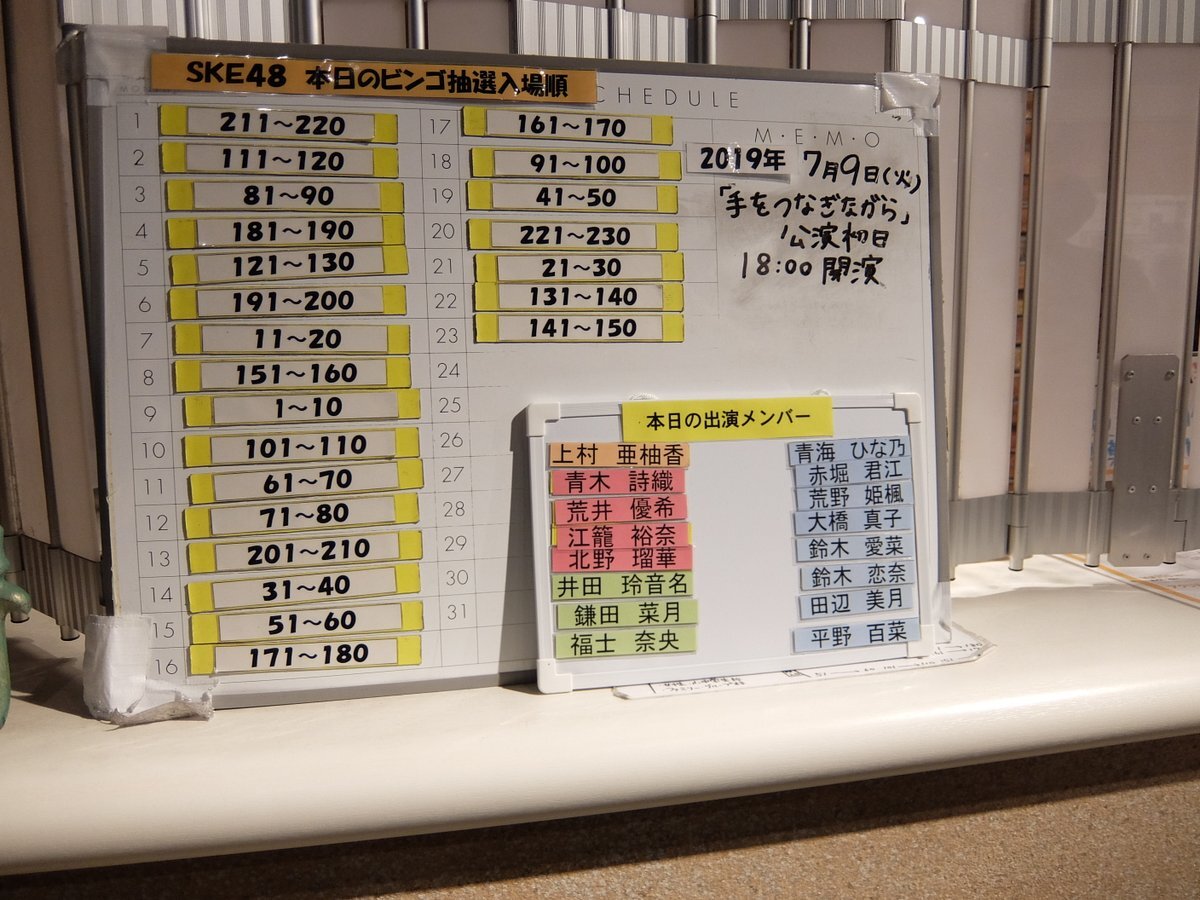 SKE48 本日のビンゴ抽選入場順
CHEDULE
1 211～220
2 111～120
3 81～90
4 181～190
5 121～130
6 191～200
7 11～20
8 151～160
9 1～10
10 101～110
11 61～70
12 71～80
13 201～210
14 31～40
15 51～60
16 171～180
17 161～170
18 91～100
19 41～50
20 221～230
21 21～30
22 131～140
23 141～150
24
25
26
27
28
29
30
31
M・E・M・O
2019年 7月9日(火)
「手をつなぎながら」
公演初日
18:00 開演
本日の出演メンバー
上村 亜柚香
青木 詩織
荒井 優希
江籠 裕奈
北野 瑠華
井田 玲音名
鎌田 菜月
福士 奈央
青海 ひな乃
赤堀 君江
荒野 姫楓
大橋 真子
鈴木 愛菜
鈴木 恋奈
田辺 美月
平野 百菜